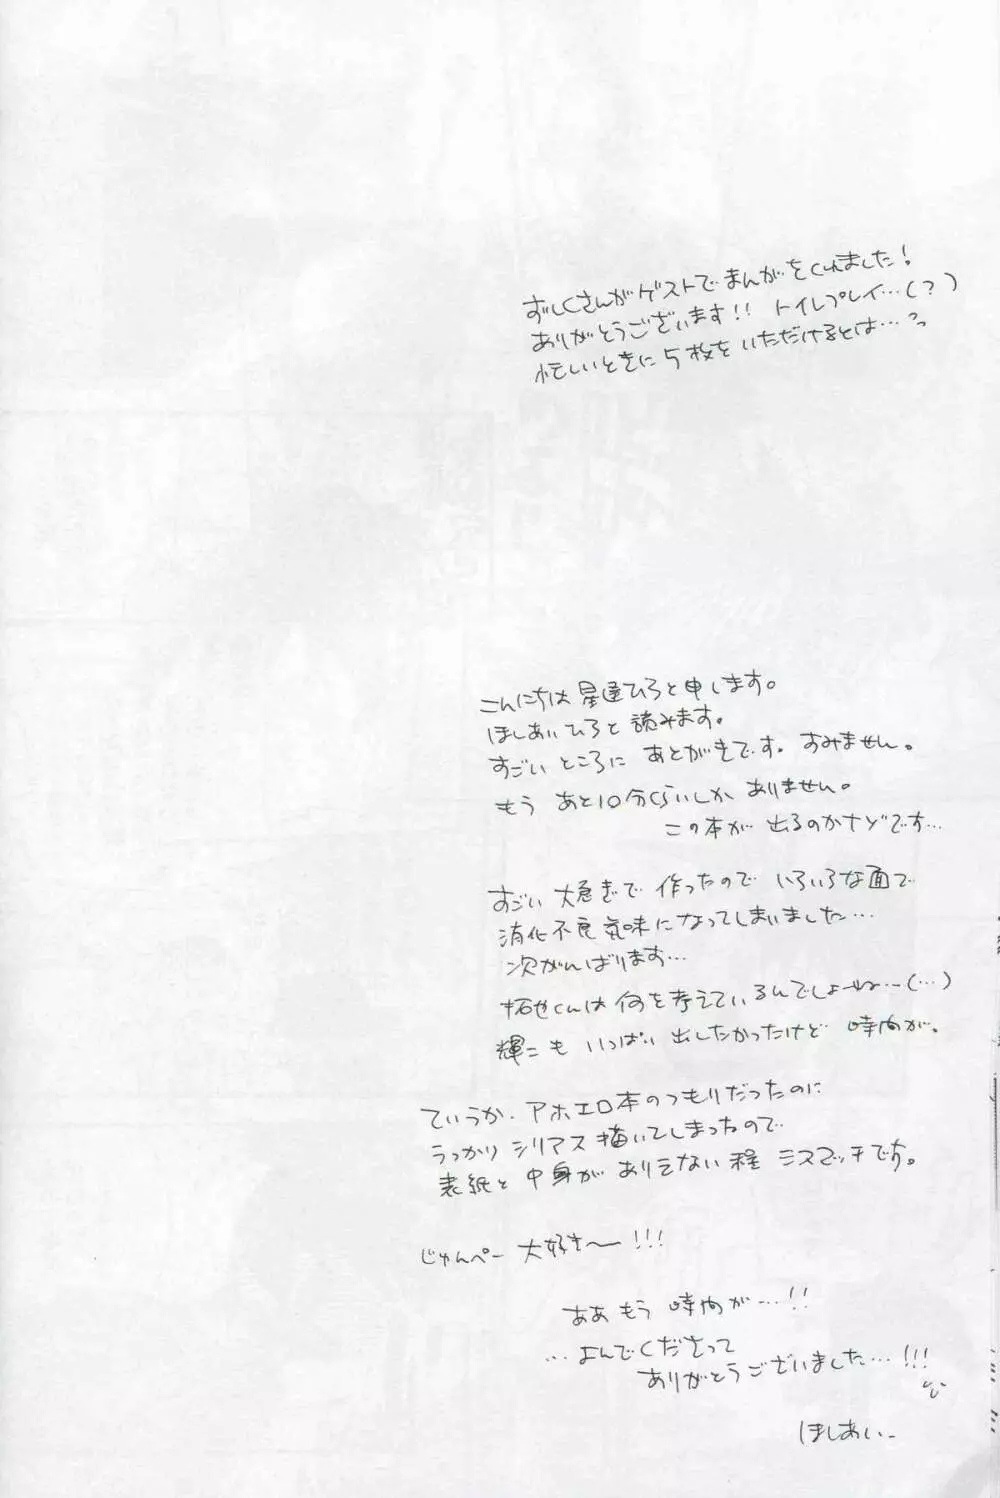 ずしこさんがゲストでまんがをくれました!
ありがとうございます!! トイレプレイ…(?)
忙しいときに5枚をいただけるとは…
こんにちは星逢ひろと申します。
ほしあいひろと読みます。
すごいところにあとがきです。すみません。
もうあと10分くらいしかありません。
この本が出るのかナゾです…
すごい大急ぎで作ったのでいろいろな面で
消化不良気味になってしまいました…
次がんばります…
拓也くんは何を考えているんでしょーね…(…)
輝二もいっぱい出したかったけど時間が。
ていうか、アホエロ本のつもりだったのに
うっかりシリアス描いてしまったので
表紙と中身がありえない程ミスマッチです。
じゅんぺー大好き〜!!!
ああもう時間が…!!
…よんでくださって
ありがとうございました…!!!
ほしあい